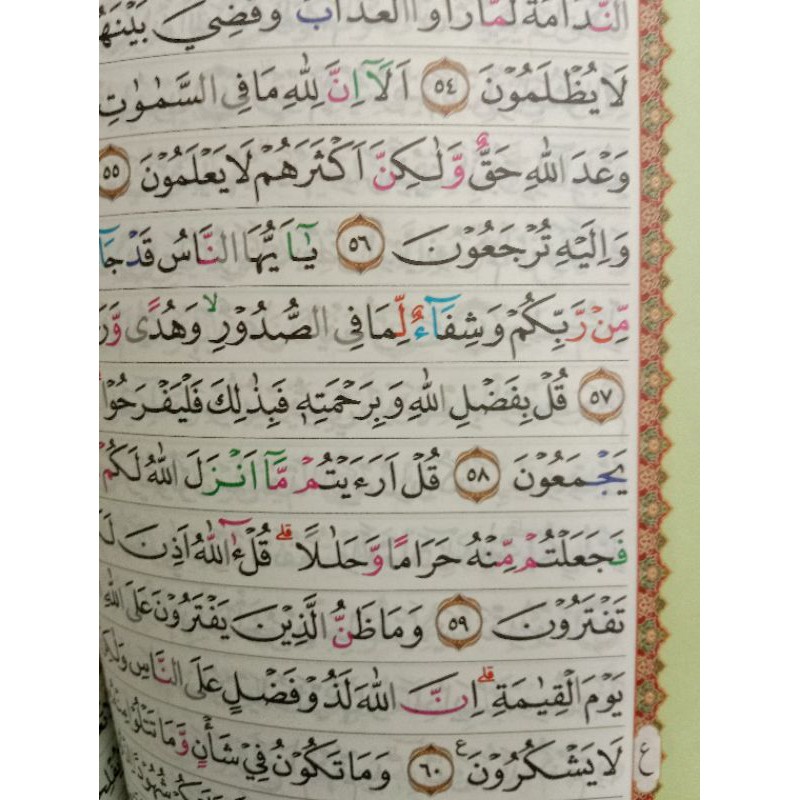 النَّدَامَةَ لَمَّا رَاَوُا الْعَذَابَ وَقُضِيَ بَيْنَهُمْ
لَا يُظْلَمُوْنَ ٥٤ اَلَآ اِنَّ لِلّٰهِ مَا فِى السَّمٰوٰتِ
وَعْدَ اللّٰهِ حَقٌّ وَّلٰكِنَّ اَكْثَرَهُمْ لَا يَعْلَمُوْنَ ٥٥
وَاِلَيْهِ تُرْجَعُوْنَ ٥٦ يٰٓاَيُّهَا النَّاسُ قَدْ جَآ
مِّنْ رَّبِّكُمْ وَشِفَآءٌ لِّمَا فِى الصُّدُوْرِۙ وَهُدًى وَّرَ
٥٧ قُلْ بِفَضْلِ اللّٰهِ وَبِرَحْمَتِهٖ فَبِذٰلِكَ فَلْيَفْرَحُوْا
يَجْمَعُوْنَ ٥٨ قُلْ اَرَءَيْتُمْ مَّآ اَنْزَلَ اللّٰهُ لَكُمْ
فَجَعَلْتُمْ مِّنْهُ حَرَامًا وَّحَلٰلًا ۗ قُلْ ءٰۤاللّٰهُ اَذِنَ لَكُ
تَفْتَرُوْنَ ٥٩ وَمَا ظَنُّ الَّذِيْنَ يَفْتَرُوْنَ عَلَى اللّٰهِ
يَوْمَ الْقِيٰمَةِ ۗ اِنَّ اللّٰهَ لَذُوْ فَضْلٍ عَلَى النَّاسِ وَلٰكِ
لَا يَشْكُرُوْنَ ࣖ ٦٠ وَمَا تَكُوْنُ فِيْ شَأْنٍ وَّمَا تَتْلُوْا مِنْهُ
ع